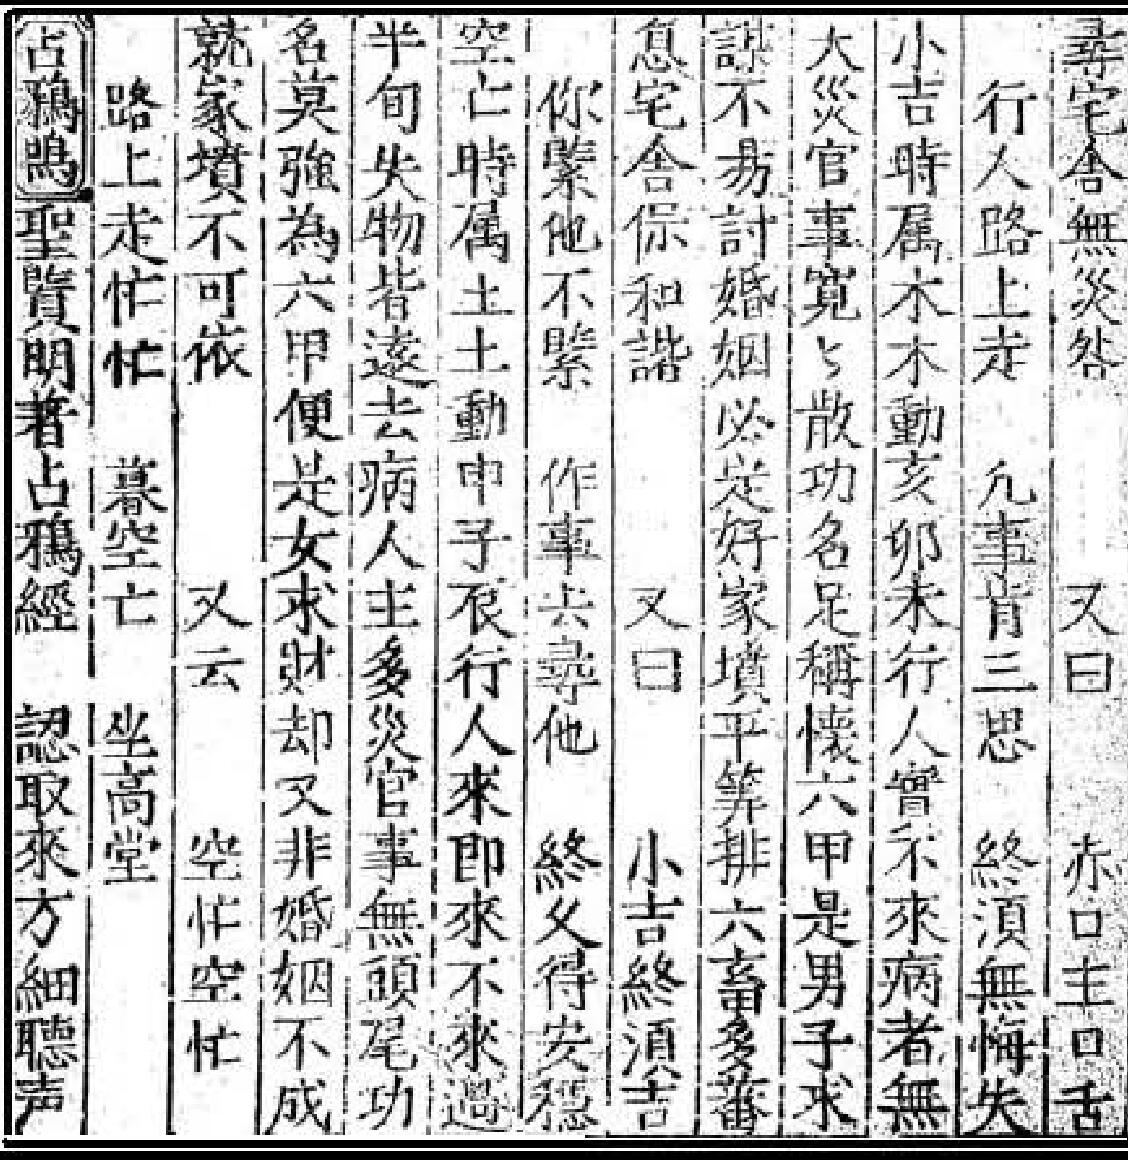 尋宅舎無災咎　又曰　赤口主口舌
行人路上走　凢事肯三思　終須無悔失
小吉時属木木動亥卯未行人實不來病者無
大災官事寛〻散功名足稱懷六甲是男子求
謀不易討婚姻必定好家墳平等排六畜多蕃
息宅舎保和諧　又曰　小吉終須吉
你緊他不緊　作事去尋他　終乆得安穏
空亡時属土土動申子辰行人來即來不來過
半旬失物皆遠去病人主多災官事無頭尾功
名莫強為六甲便是女求財却又非婚姻不成
就家墳不可依　又云　空忙空忙
路上走忙忙　暮空亡　坐高堂
占鴉鳴聖賢明著占鴉經　認取來方細聽声